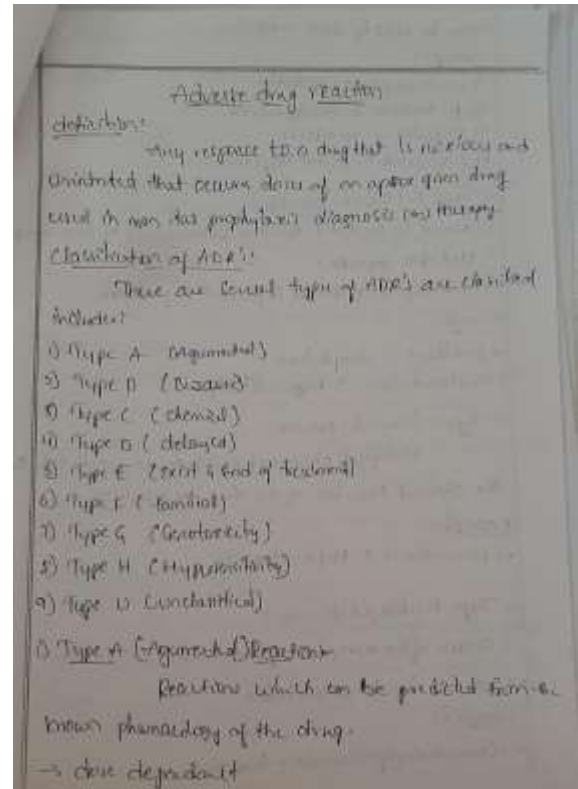 Adverse drug reaction
definition:
Any response to a drug that is noxious and
unintended that occurs dose of an drug
used in man for prophylaxis diagnosis therapy
Classification of ADR's:
There are several types of ADR's are classified
includes:
1) Type A (Agumented)
2) Type B (Bizarre)
3) Type C (chemical)
4) Type D (delayed)
5) Type E (exist & End of treatment)
6) Type F (familial)
7) Type G (Genotoxicity)
8) Type H (Hypersensitivity)
9) Type U (unclassified)
1) Type A (Agumented) Reaction
Reactions which can be predicted from the
known pharmacology of the drug.
→ dose dependant